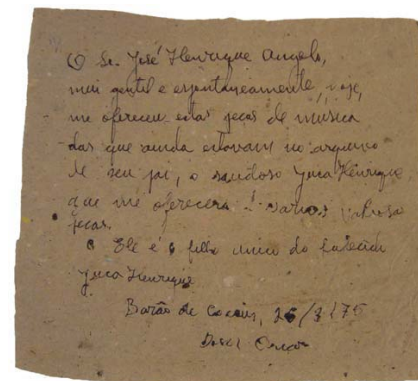 O Sr. José Henrique Angelo,
mui gentil e espontaneamente, hoje,
me ofereceu estas peças de música
das que ainda estavam no arquivo
de seu pai, o saudoso Juca Henrique,
que me oferecera várias valiosas
peças.
Ele é o filho único do
Juca Henrique
Barão de Cocais, 26/3/75